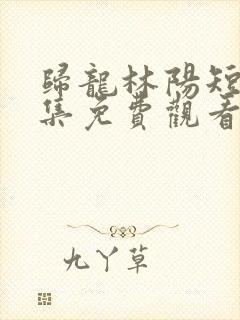 歸龍林陽短
集免費觀看
九丫草